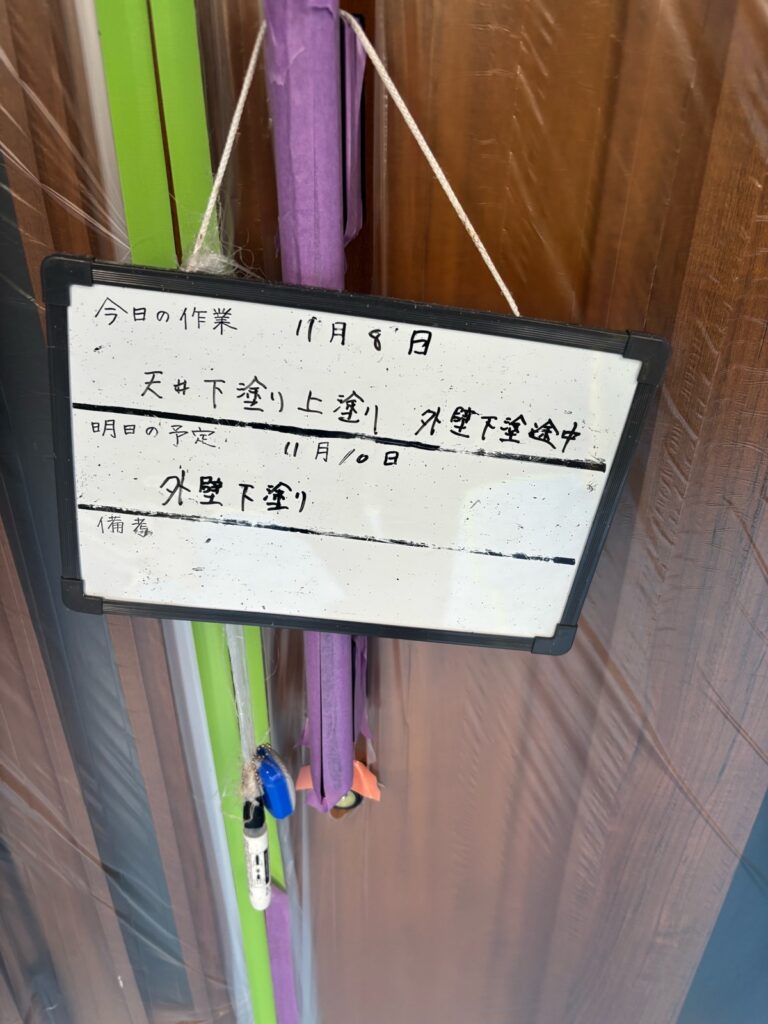 今日の作業 11月8日
天井下塗り上塗り 外壁下塗途中
明日の予定 11月10日
外壁下塗り
備考